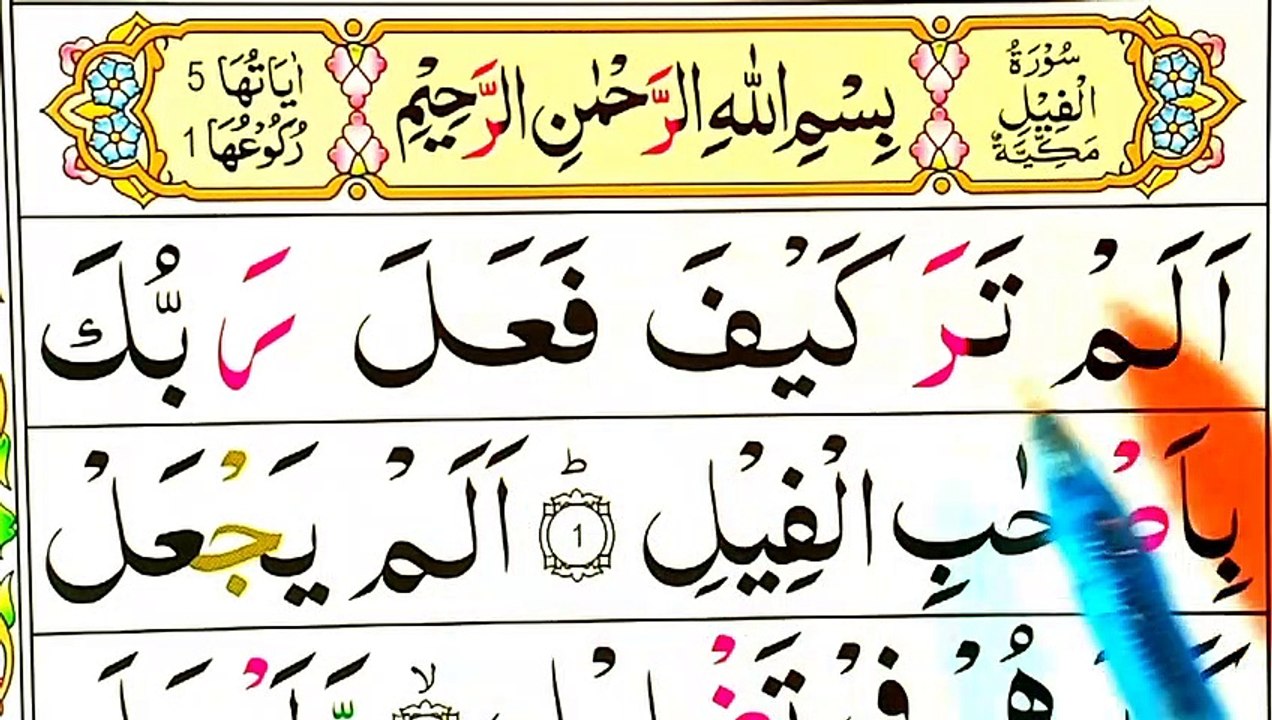 سُوْرَةُ الْفِيْلِ مَكِّيَّةٌ
بِسْمِ اللّٰهِ الرَّحْمٰنِ الرَّحِيْمِ
اٰيَاتُهَا 5
رُكُوْعُهَا 1
اَلَمْ تَرَ كَيْفَ فَعَلَ رَبُّكَ
بِاَصْحٰبِ الْفِيْلِ ؕ 1 اَلَمْ يَجْعَلْ